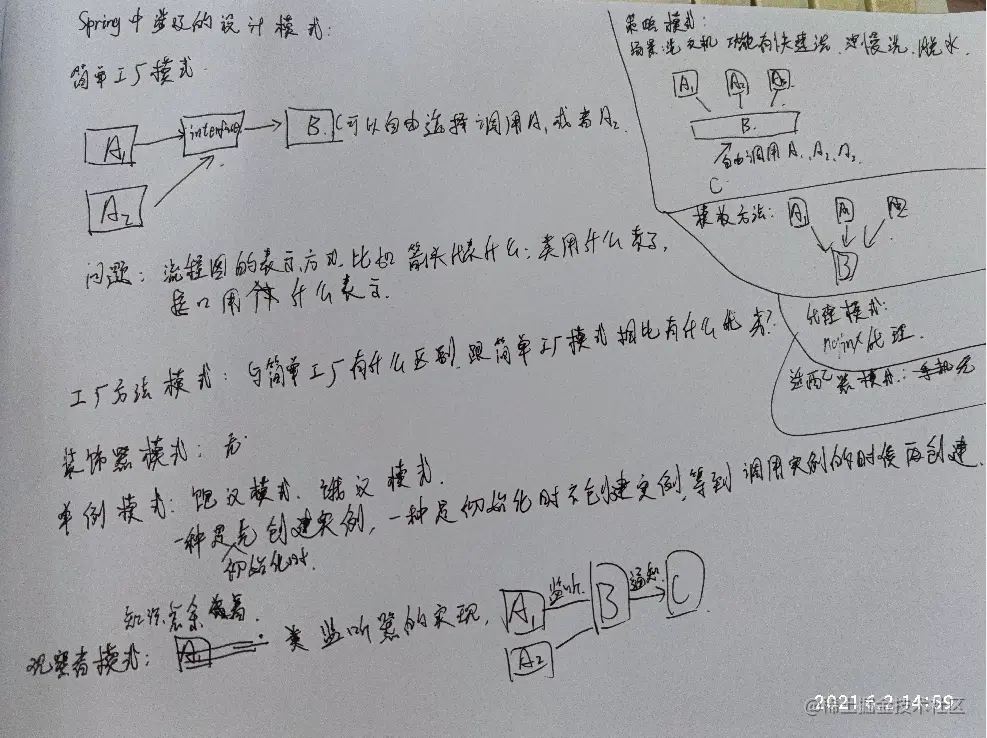 Spring中涉及的设计模式:
简单工厂模式.
A1
interface
B.
C可以自由选择调用A1或者A2.
A2
问题: 流程图的表示方式, 比如箭头代表什么; 类用什么表示,
接口用什么表示.
工厂方法模式: 与简单工厂有什么区别, 跟简单工厂模式相比有什么优势?
装饰器模式: 无.
单例模式: 饱汉模式、饿汉模式.
一种是先创建实例, 一种是初始化时不创建实例, 等到调用实例的时候再创建.
初始化时.
知识
观察者模式: A1 类监听器的实现,
A1 监听. B 通知. C
A2
策略模式:
场景: 洗衣机 功能有快速洗, 慢洗, 脱水
A1 A2 A3
B.
自由调用A1、A2、A3.
C
模板方法: A1
B
代理模式:
nginx代理.
适配器模式: 无
2021 6.2 14:59
@稀土掘金技术社区